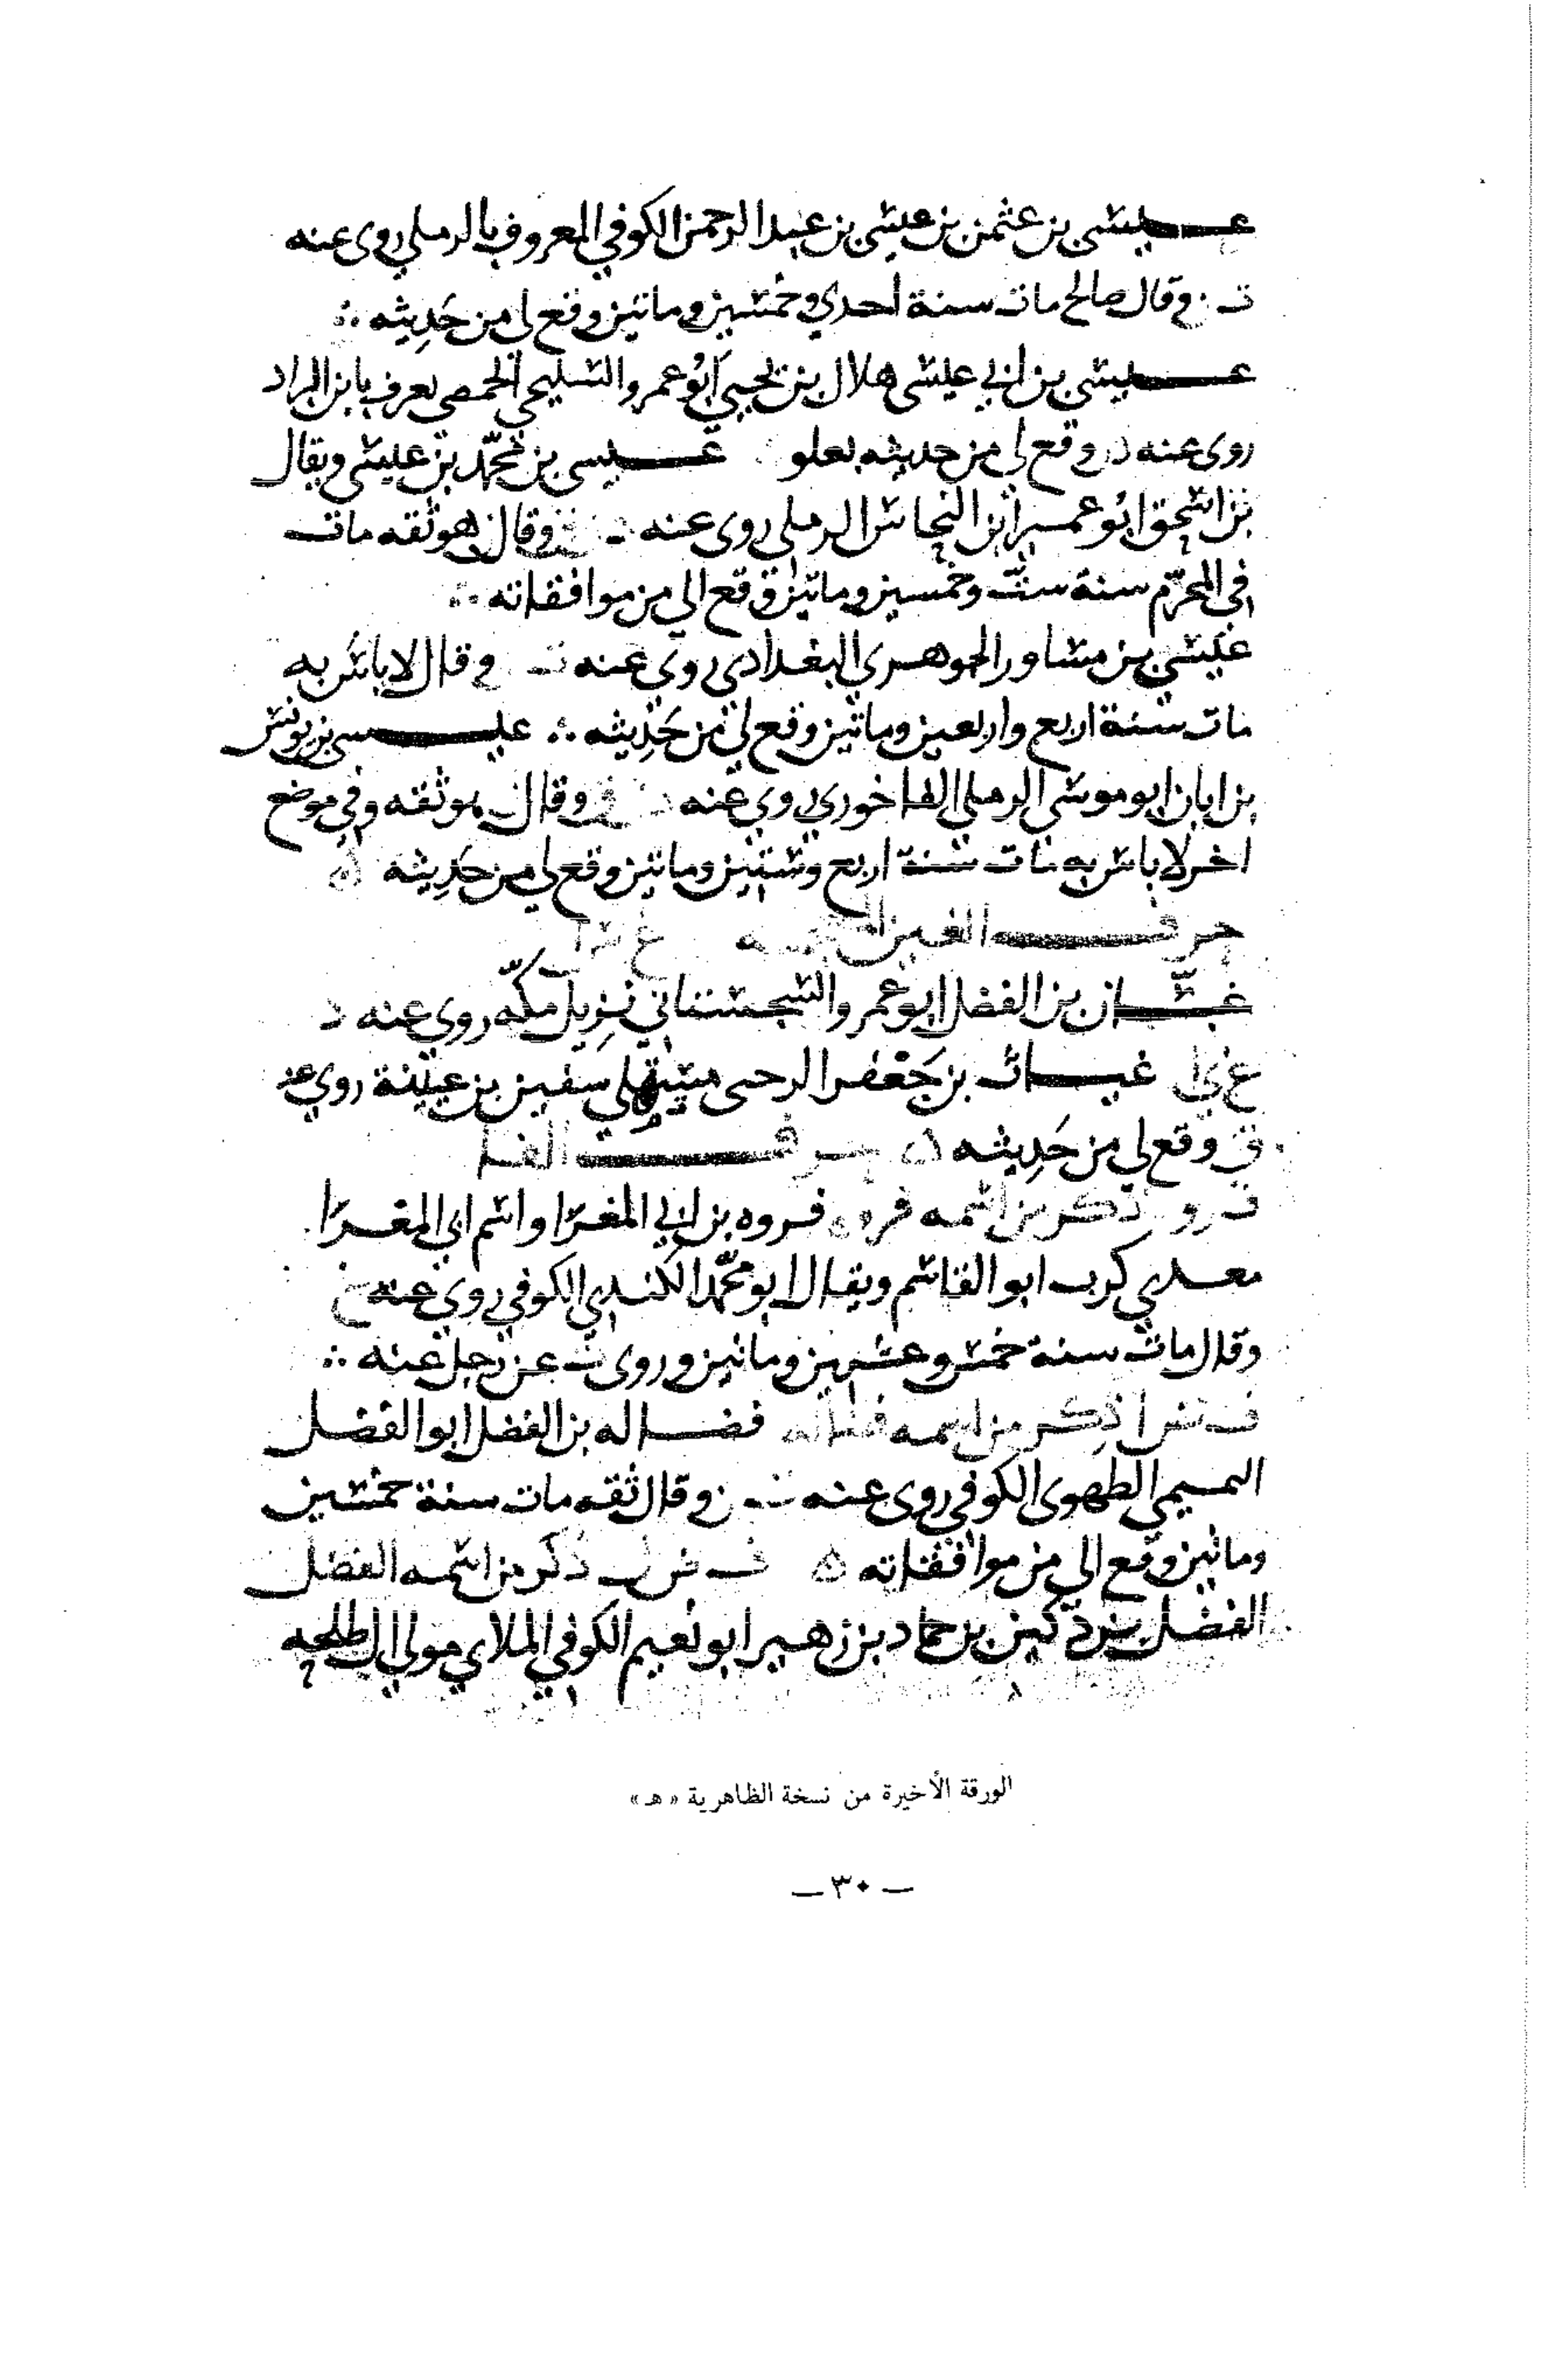 عيسى بن عثمن بن عيسى بن عبد الرحمن الكوفي المعروف بالرملي روى عنه
ت وقال صالح مات سنة احدى وخمسين وماتين وقع لي من حَدِيثه ∴
عيسى بن ابي عيسى هلال بن يحيى ابُو عمرو السليحي الحمصي يعرف بابن البراد
روى عنه د وقع لي من حديثه بعلو عيسى بن محمّد بن عيسى ويقال
بن اسحق ابُو عمير ابن النحاس الرملي روى عنه وقال هو ثقه مات
في المحرّم سنة ستّ وخمسين وماتين وقع الي من موافقاته ∴
عيسى بن مساور الجوهري البغدادي روى عنه وقال لا باس به
مات سنة اربع واربعين وماتين وقع لي من حَدِيثه ∴ عيسى بن يونس
بن ابان ابو موسى الرملي الفاخوري روى عنه وقال هو ثقه وفي موضع
اخر لا باس به مات سنة اربع وستين وماتين وقع لي من حَدِيثه ه
حرف الغين المعجمه
غسّان بن الفضل ابو عمرو السجستاني نزِيل مكّه روى عنه د
غياث بن جَعْفر الرحبى مستملي سفين بن عيينة روى عنه
ق وقع لي من حَدِيثه ه حرف الفا
ف رو ذكر من اسمه فروه فروه بن ابي المغرا واسم ابي المغرا
معدي كرب ابو القاسم ويقال ابو محمّد الكندي الكوفي روى عنه خ
وقال مات سنة خمس وعشرين وماتين وروى ت عن رجل عنه ∴
ف ض ا ذكر من اسمه فضاله فضاله بن الفضل ابو الفضل
التميمي الطهوى الكوفي روى عنه وقال ثقه مات سنة خمسين
وماتين وقع الي من موافقاته ه ف ض ل ذكر من اسمه الفضل
الفضل بن دكين بن حماد بن زهير ابو نُعيم الكوفي الملاي مولى ال طلحه
الورقة الأخيرة من نسخة الظاهرية «هـ»
— ٣٠ —